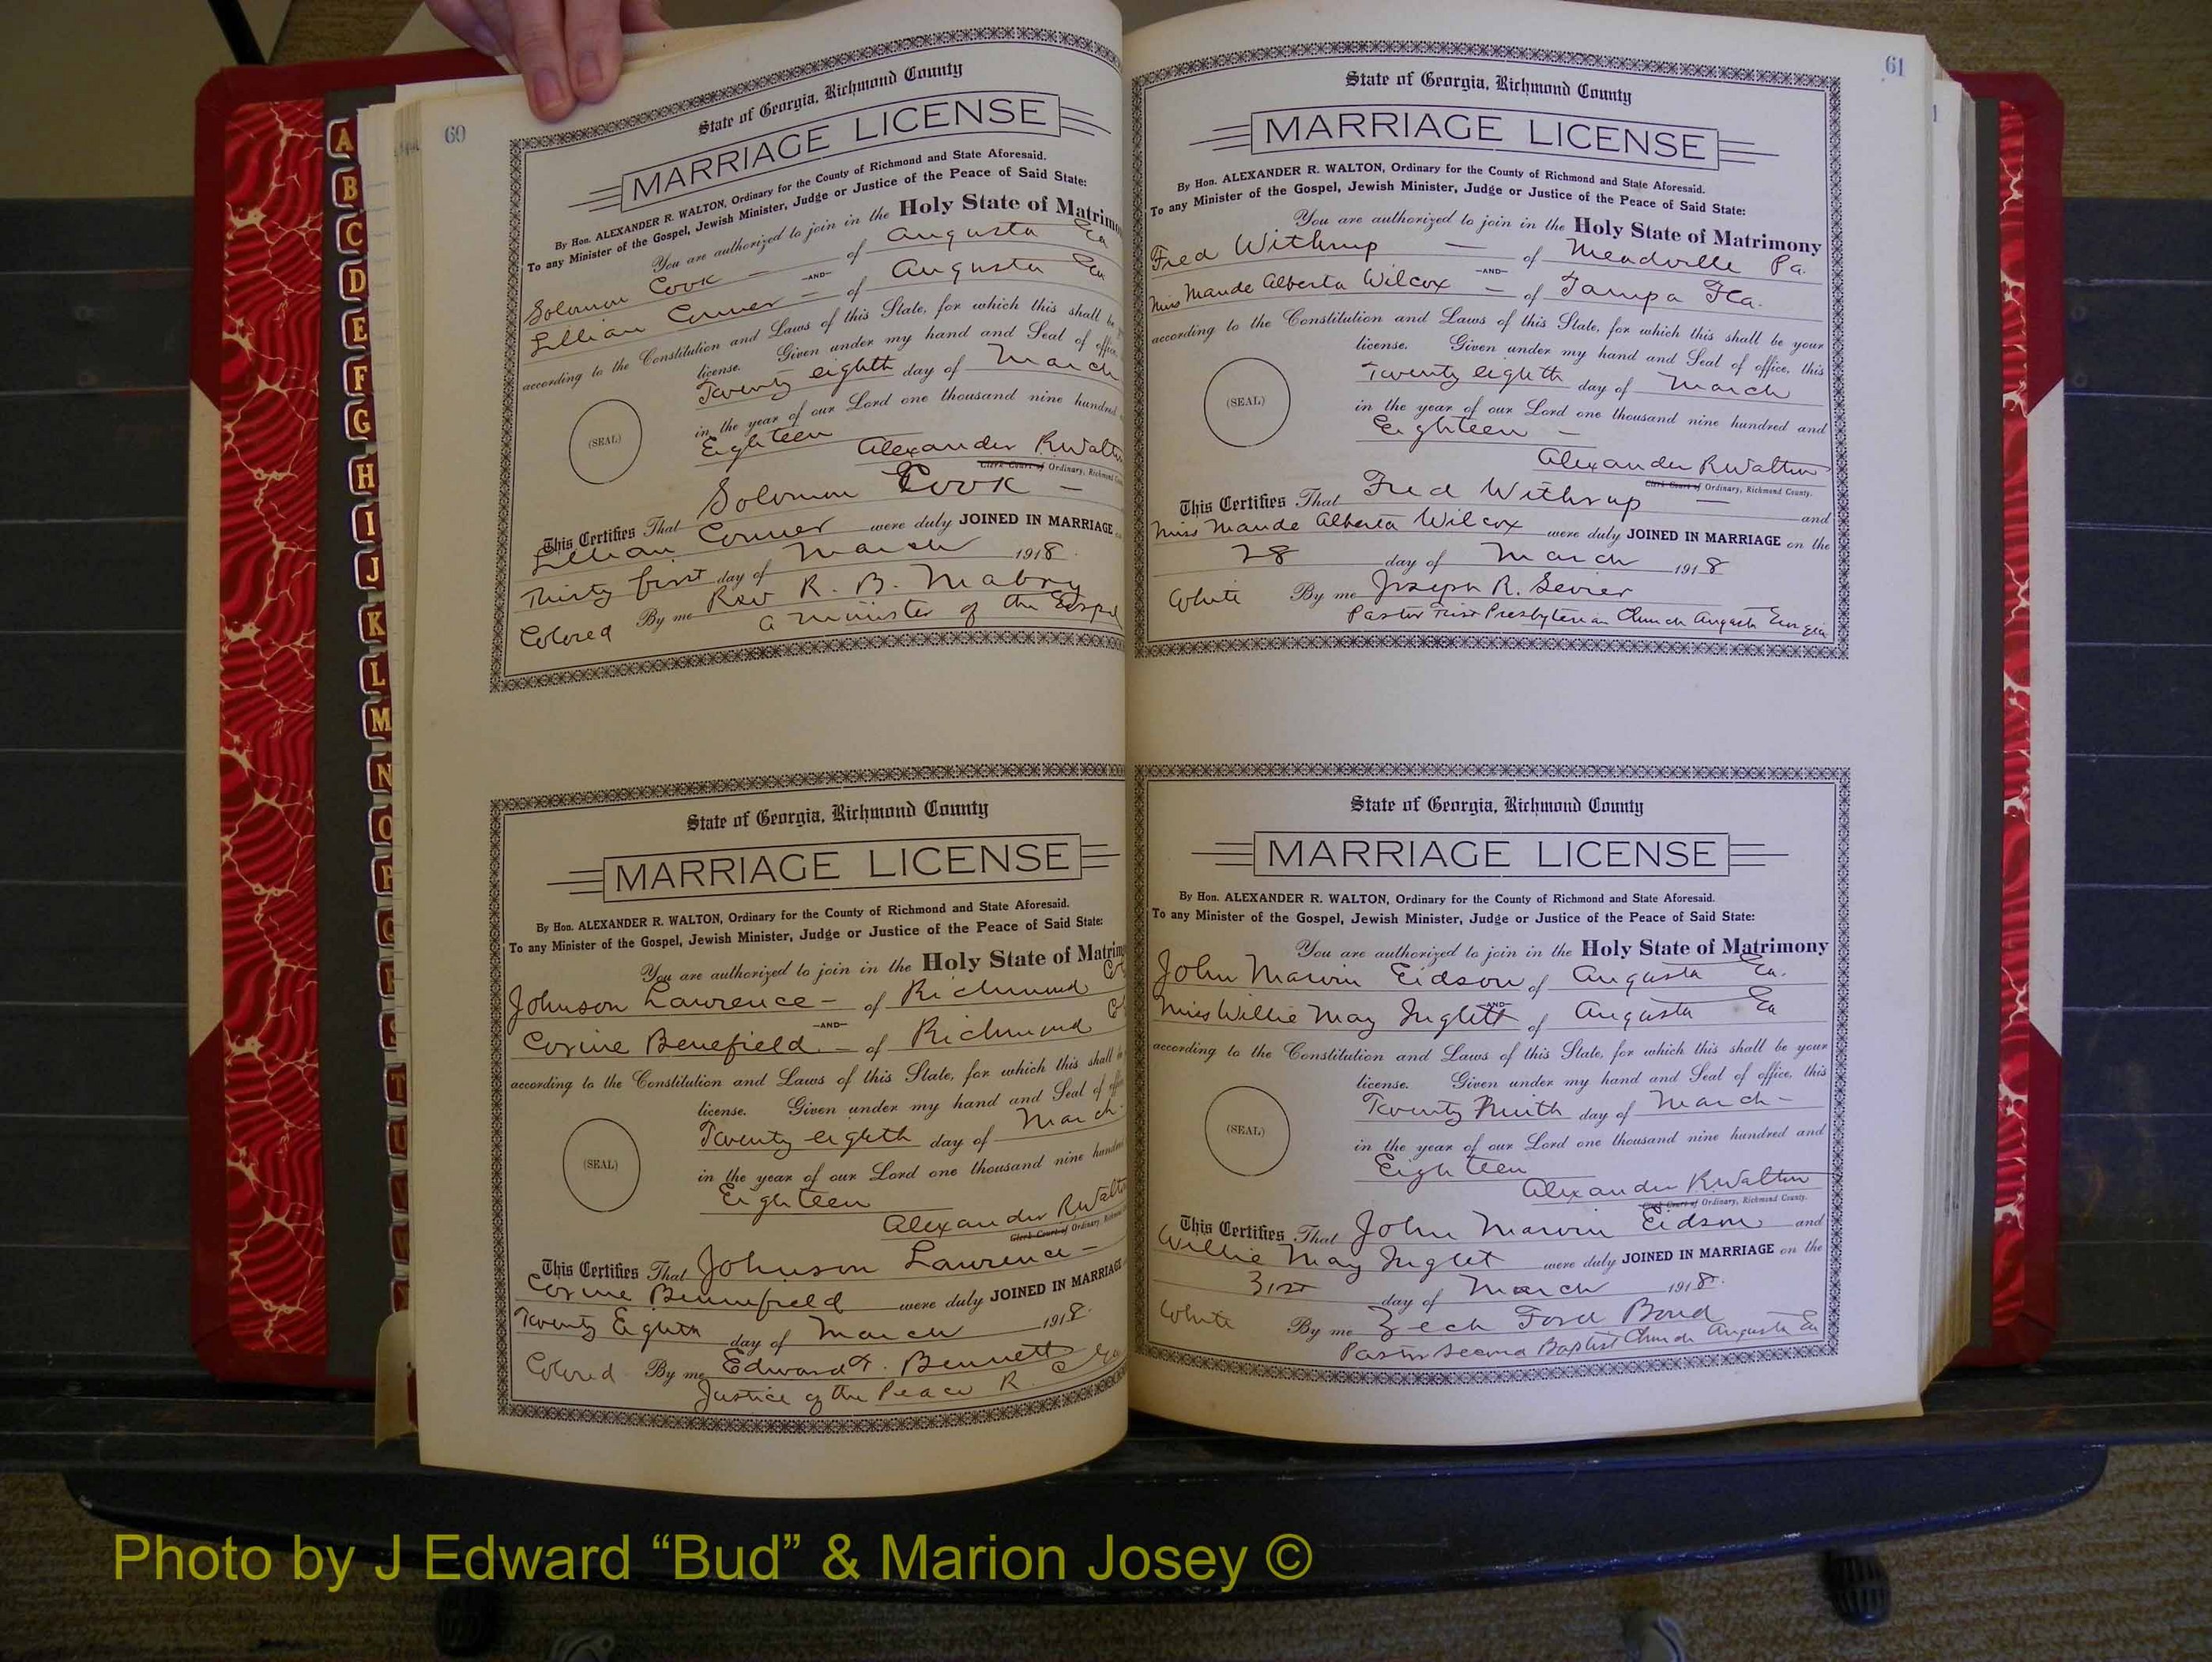 60
State of Georgia, Richmond County
MARRIAGE LICENSE
By Hon. ALEXANDER R. WALTON, Ordinary for the County of Richmond and State Aforesaid.
To any Minister of the Gospel, Jewish Minister, Judge or Justice of the Peace of Said State:
You are authorized to join in the Holy State of Matrimo
Solomon Cook — of Augusta Ga
—AND—
Lillian Conner — of Augusta Ga
according to the Constitution and Laws of this State, for which this shall be
license. Given under my hand and Seal of office,
Twenty eighth day of March
in the year of our Lord one thousand nine hundred
Eighteen
(SEAL)
Alexander R Walton
Clerk Court of Ordinary, Richmond
This Certifies That Solomon Cook —
Lillian Conner were duly JOINED IN MARRIAGE
Thirty first day of March 1918
Colored By me Rev R. B. Mabry
a minister of the Gospel
State of Georgia, Richmond County
MARRIAGE LICENSE
By Hon. ALEXANDER R. WALTON, Ordinary for the County of Richmond and State Aforesaid.
To any Minister of the Gospel, Jewish Minister, Judge or Justice of the Peace of Said State:
You are authorized to join in the Holy State of Matrim
Johnson Lawrence — of Richmond Co
—AND—
Corine Benefield — of Richmond Co
according to the Constitution and Laws of this State, for which this shall
license. Given under my hand and Seal of
Twenty eighth day of March
in the year of our Lord one thousand nine hundred
Eighteen
(SEAL)
Alexander R Walton
Clerk Court of Ordinary,
This Certifies That Johnson Lawrence —
Corine Bennefield were duly JOINED IN MARRIAGE
Twenty Eighth day of March 1918
Colored By me Edward T. Bennett
Justice of the Peace R C Ga
61
State of Georgia, Richmond County
MARRIAGE LICENSE
By Hon. ALEXANDER R. WALTON, Ordinary for the County of Richmond and State Aforesaid.
To any Minister of the Gospel, Jewish Minister, Judge or Justice of the Peace of Said State:
You are authorized to join in the Holy State of Matrimony
Fred Withrup — of Meadville Pa.
—AND—
Miss Maude Alberta Wilcox — of Tampa Fla.
according to the Constitution and Laws of this State, for which this shall be your
license. Given under my hand and Seal of office, this
Twenty eighth day of March
in the year of our Lord one thousand nine hundred and
Eighteen —
(SEAL)
Alexander R Walton
Clerk Court of Ordinary, Richmond County.
This Certifies That Fred Withrup — and
Miss Maude Alberta Wilcox were duly JOINED IN MARRIAGE on the
28 day of March 1918
White By me Joseph R. Sevier
Pastor First Presbyterian Church Augusta Georgia
State of Georgia, Richmond County
MARRIAGE LICENSE
By Hon. ALEXANDER R. WALTON, Ordinary for the County of Richmond and State Aforesaid.
To any Minister of the Gospel, Jewish Minister, Judge or Justice of the Peace of Said State:
You are authorized to join in the Holy State of Matrimony
John Marvin Eidson of Augusta Ga.
—AND—
Miss Willie May Inglett of Augusta Ga
according to the Constitution and Laws of this State, for which this shall be your
license. Given under my hand and Seal of office, this
Twenty Ninth day of March —
in the year of our Lord one thousand nine hundred and
Eighteen
(SEAL)
Alexander R Walton
Clerk Court of Ordinary, Richmond County.
This Certifies That John Marvin Eidson and
Willie May Inglet were duly JOINED IN MARRIAGE on the
31st day of March 1918.
White By me Zech Ford Bond
Pastor Second Baptist Church Augusta Ga
A
B
C
D
E
F
G
H
I
J
K
L
M
N
O
P
Q
R
S
T
U
Photo by J Edward “Bud” & Marion Josey ©